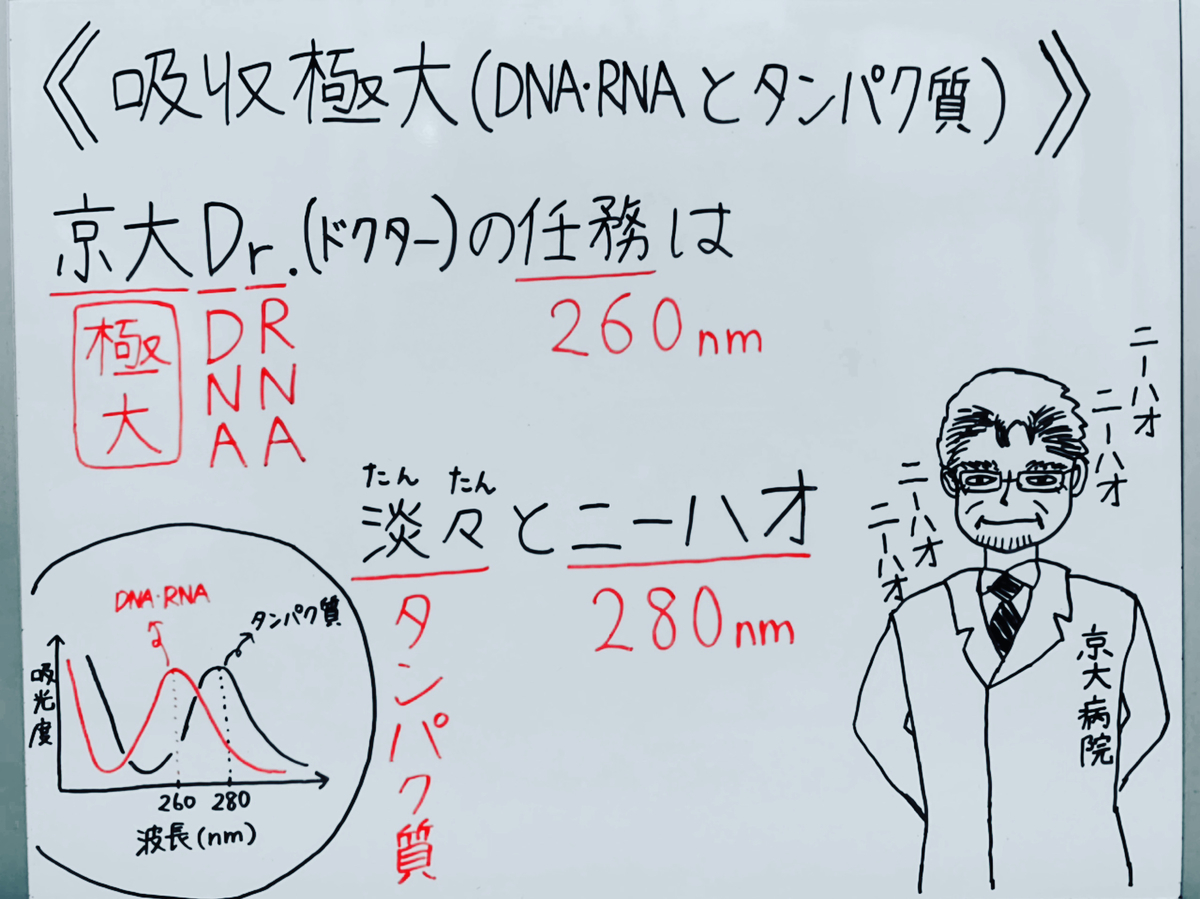 《吸収極大(DNA・RNAとタンパク質)》
京大Dr.(ドクター)の任務は
極大
DNA
RNA
260nm
たん たん
淡々とニーハオ
タンパク質
280nm
ニーハオ
ニーハオ
ニーハオ
ニーハオ
京大病院
DNA・RNA
タンパク質
吸光度
260 280
波長(nm)